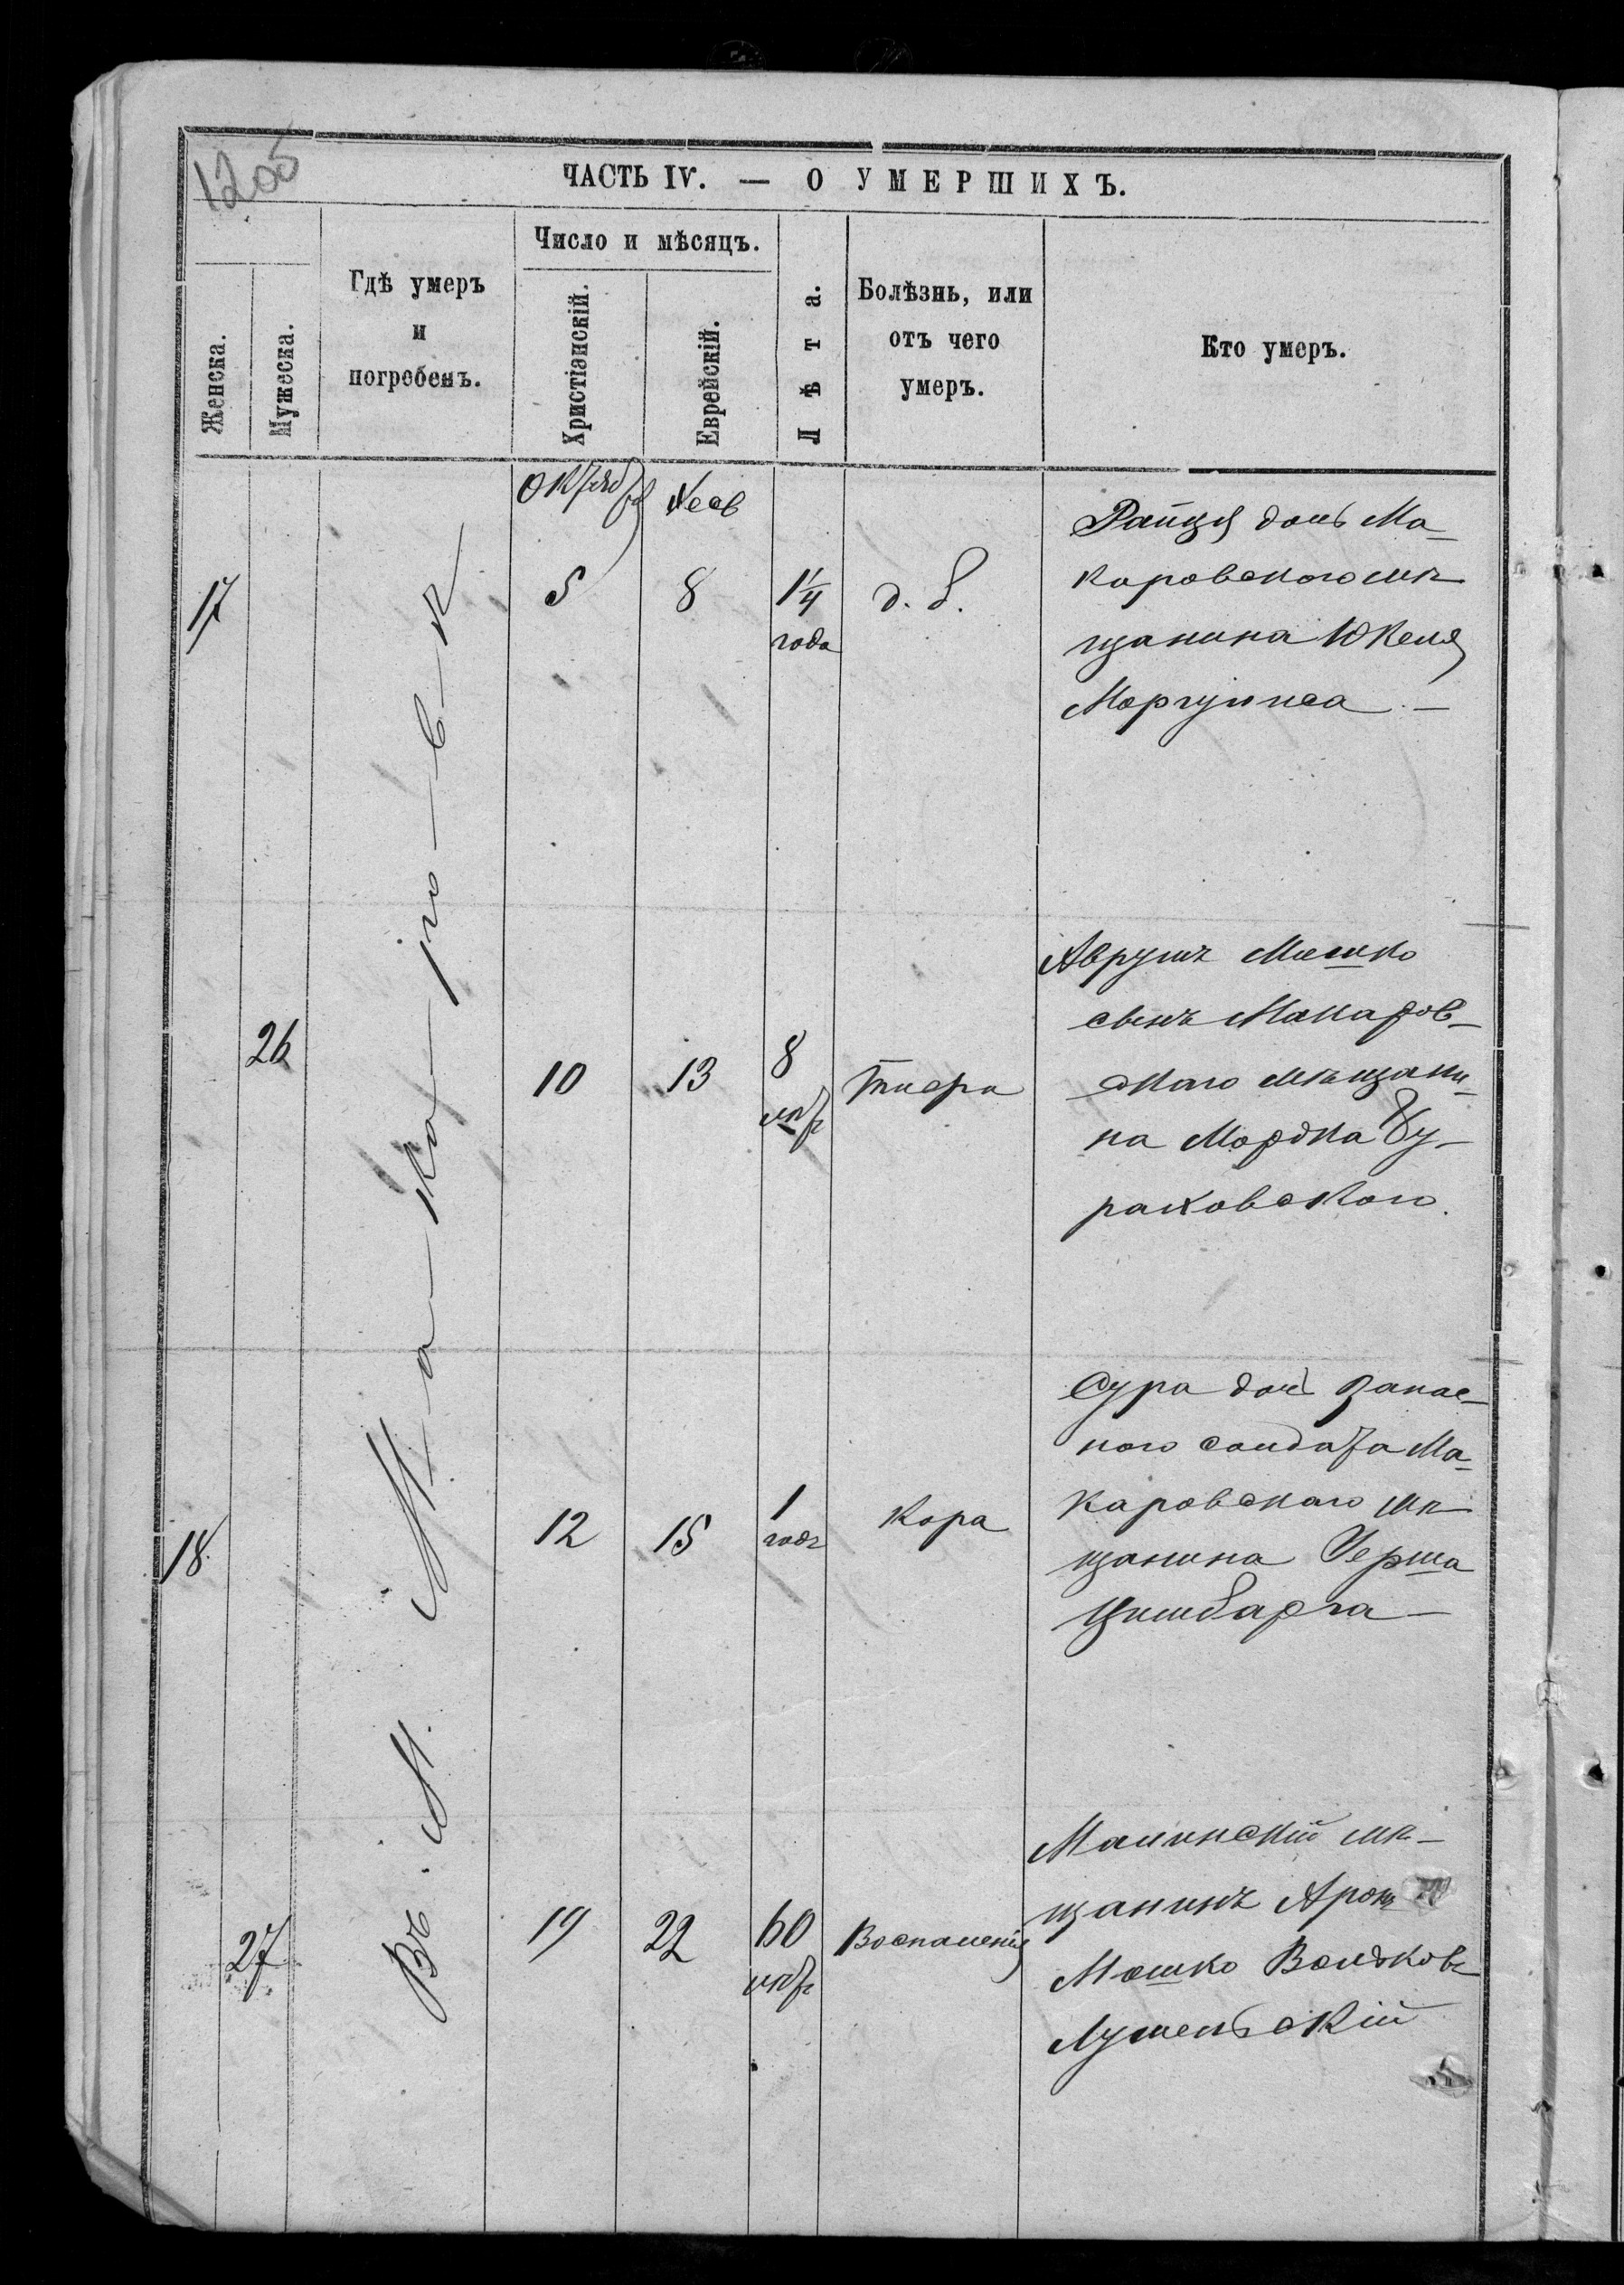 1205
ЧАСТЬ IV. — О УМЕРШИХЪ.
Женска.
Мужеска.
Гдѣ умеръ
и
погребенъ.
Число и мѣсяцъ.
Христіанскій.
Еврейскій.
Лѣта.
Болѣзнь, или
отъ чего
умеръ.
Кто умеръ.
Въ М. Ма-ка-ро-в-ѣ
Октября
Хесв
17
5
8
1 1/4
года
Д. б.
дочь Ма-
каровского мѣ-
щанина Юкеля
Моргулиса —
26
10
13
8
лѣтъ
Аврумъ Мошко
сынъ Макаров-
скаго мѣщани-
на Мордка Бу-
раховского.
18
12
15
1
годъ
Кора
Сура дочь Запас-
ного солдата Ма-
каровскаго мѣ-
щанина Герша
27
19
22
60
лѣтъ
Воспаленія
Малинскій мѣ-
щанинъ Аронъ
Мошко Вольковъ